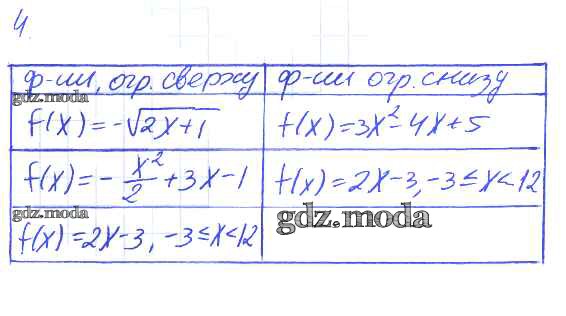 4.
ф-ии, огр. сверху ф-ии огр. снизу
gdz.moda
f(x)=-√2x+1 f(x)=3x²-4x+5
f(x)=-x²/2+3x-1 f(x)=2x-3,-3≤x<12
gdz.moda gdz.moda
f(x)=2x-3, -3≤x<12